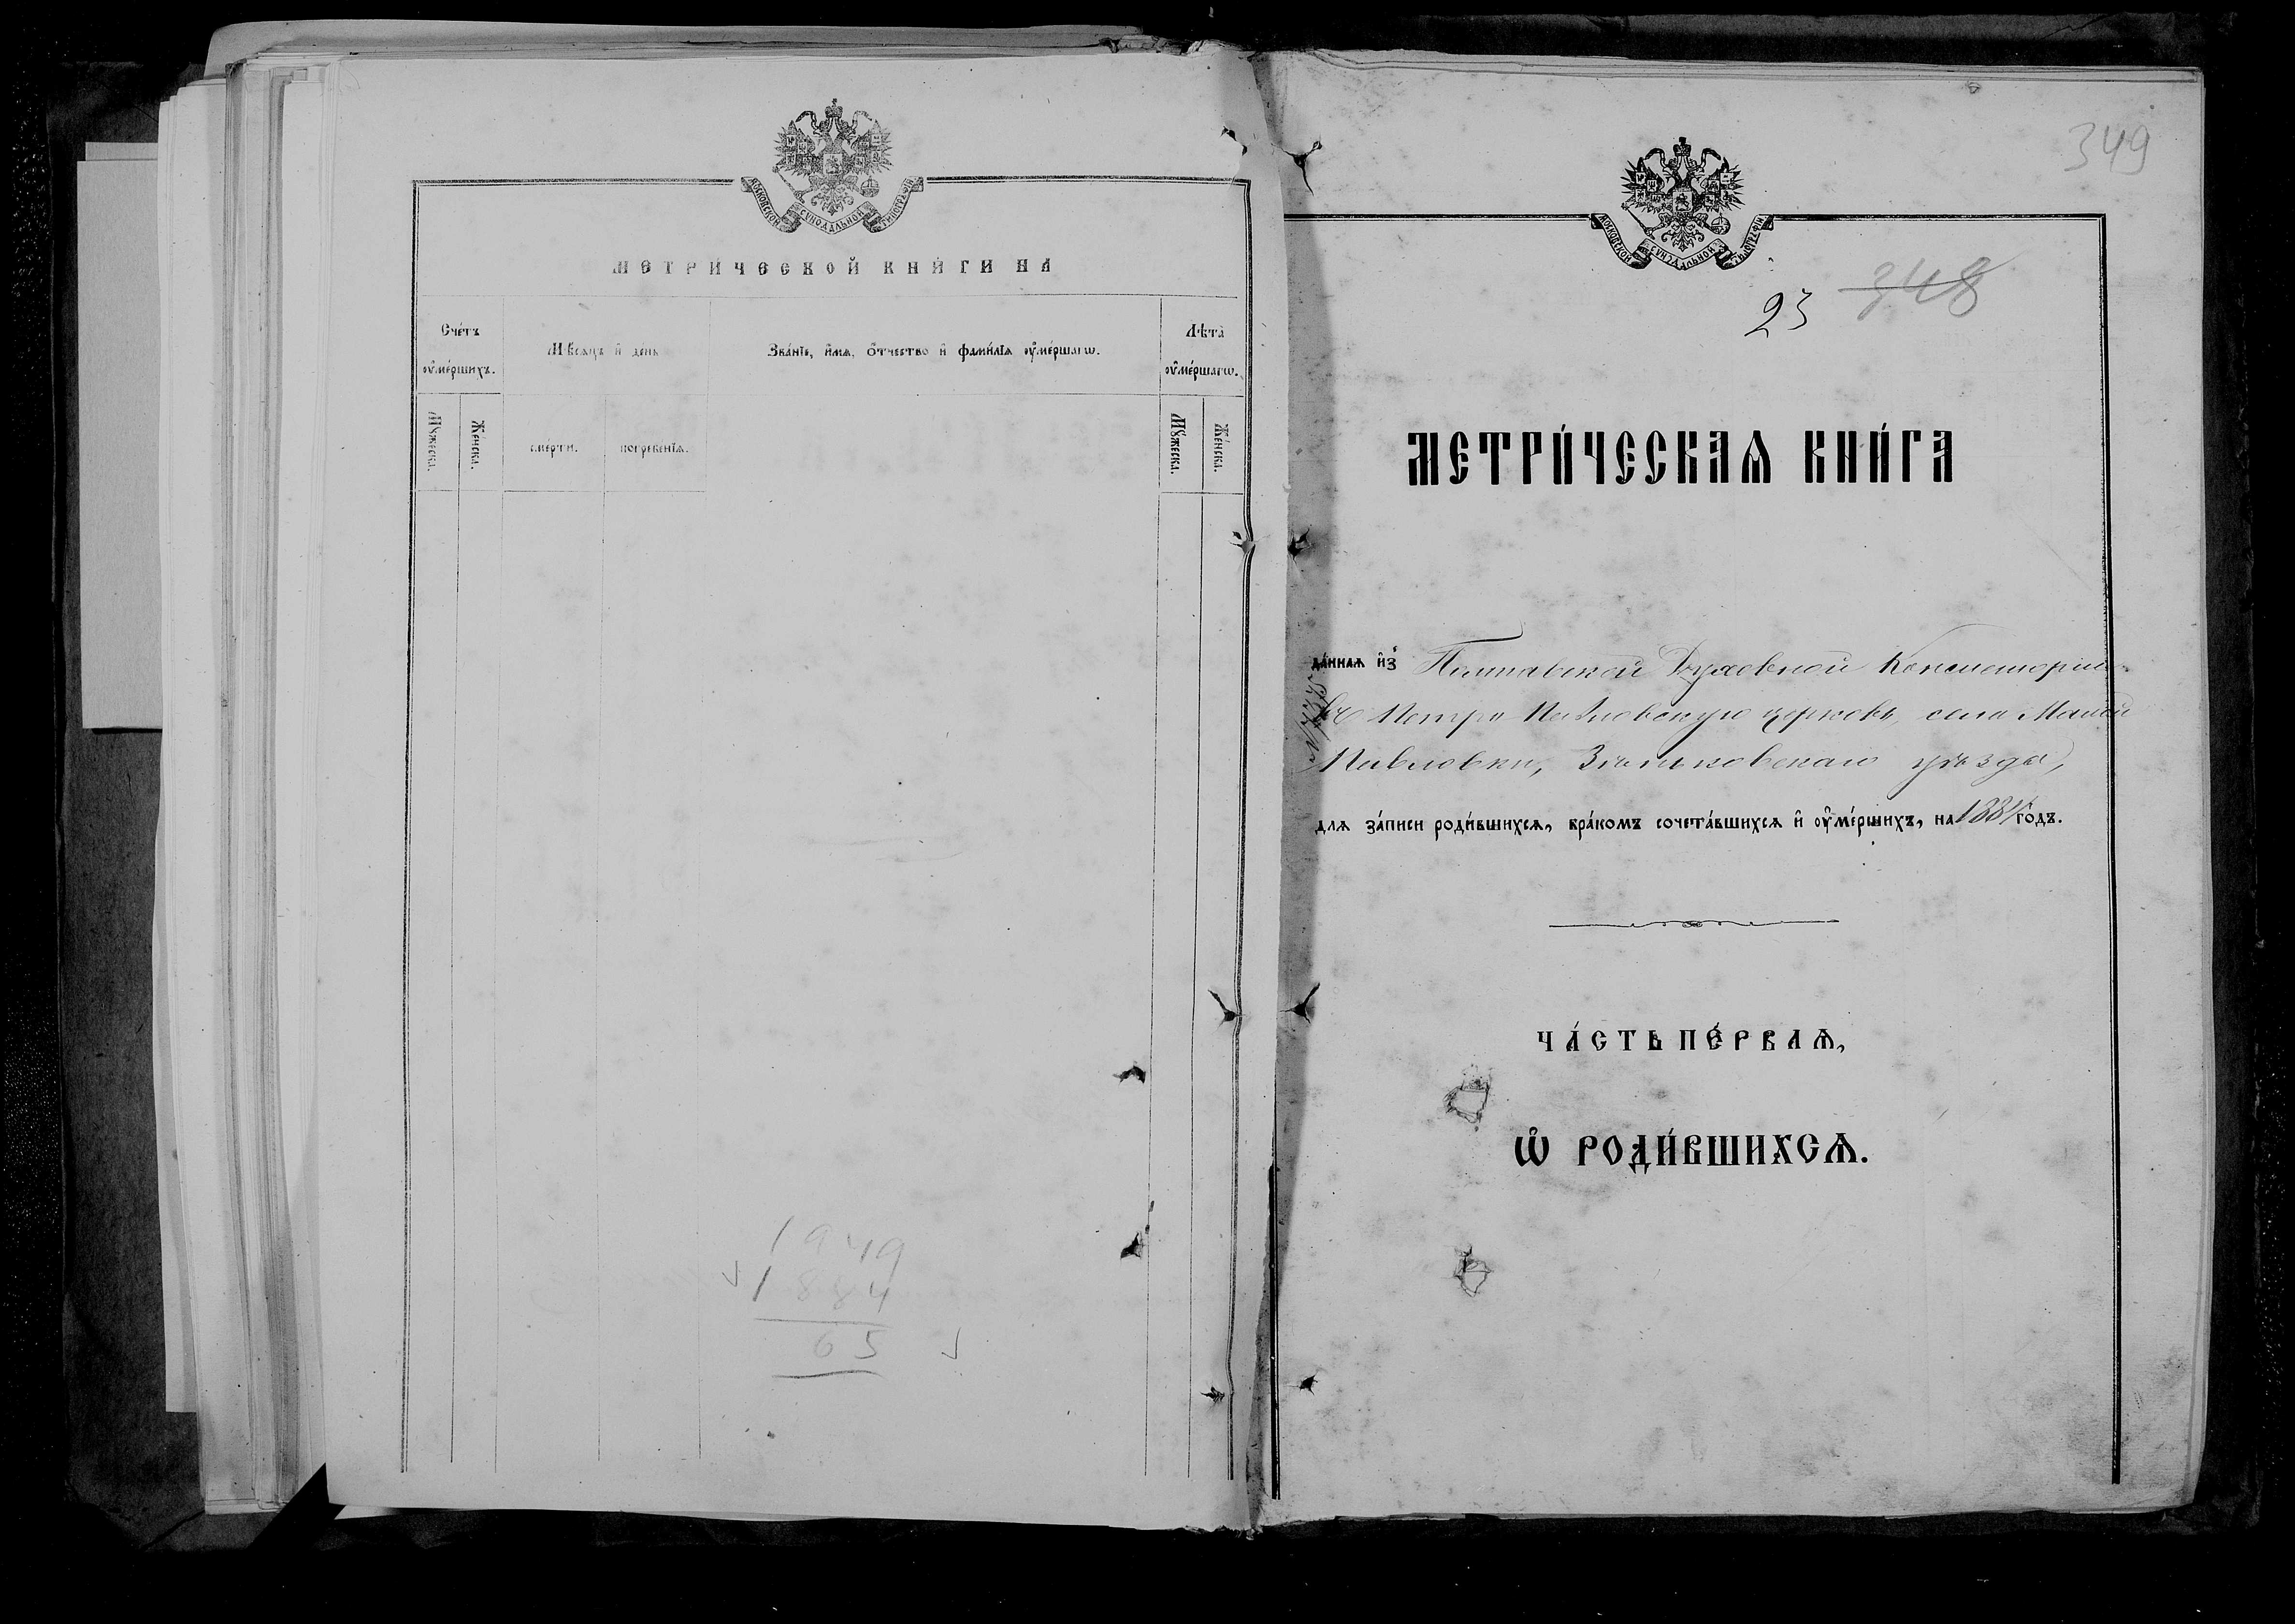 МОСКОВСКОЙ СѴНОДАЛЬНОЙ ТИПОГРАФІИ
МЕТРИ́ЧЕСКОЙ КНИ́ГИ НА
Сче́тъ ᲂу҆ме́ршихъ.
Мѣ́сѧцъ и҆ де́нь
Зва́нїе, и҆́мѧ, ѻ҆́тчество и҆ фами́лїѧ ᲂу҆ме́ршагѡ.
Лѣ́та ᲂу҆ме́ршагѡ.
Мꙋ́жеска.
Же́нска.
сме́рти.
погребе́нїѧ.
Мꙋ́жеска.
Же́нска.
1949
1884
65
349
МОСКОВСКОЙ СѴНОДАЛЬНОЙ ТИПОГРАФІИ
23 348
МЕТРИ́ЧЕСКАѦ КНИ́ГА
да́ннаѧ и҆з̾ Полтавской Духовной Консисторіи
въ Петро Павловскую церковь, села Малой
Павловки, Зѣньковскаго уѣзда,
для за́писи роди́вшихсѧ, бра́комъ сочета́вшихсѧ и҆ ᲂу҆ме́ршихъ, на 1884 го́дъ.
ЧА́СТЬ ПЕ́РВАѦ,
Ѽ РОДИ́ВШИХСѦ.